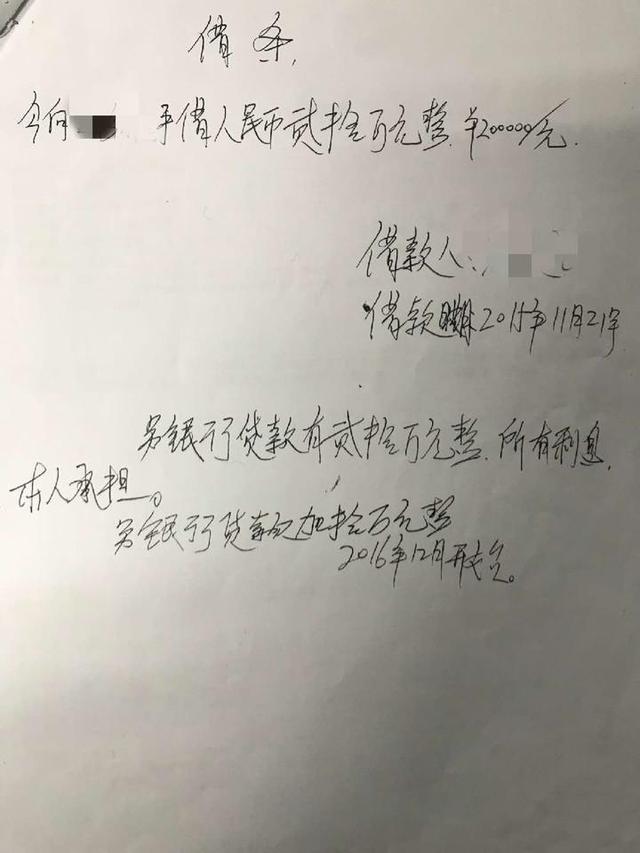 借条,
今向 平借人民币贰拾万元整.¥200000元.
借款人:
借款 2015年11月21号
另银行贷款有贰拾万元整.所有利息,
本人承担。
另银行贷款加拾万元整
2016年12月开始。